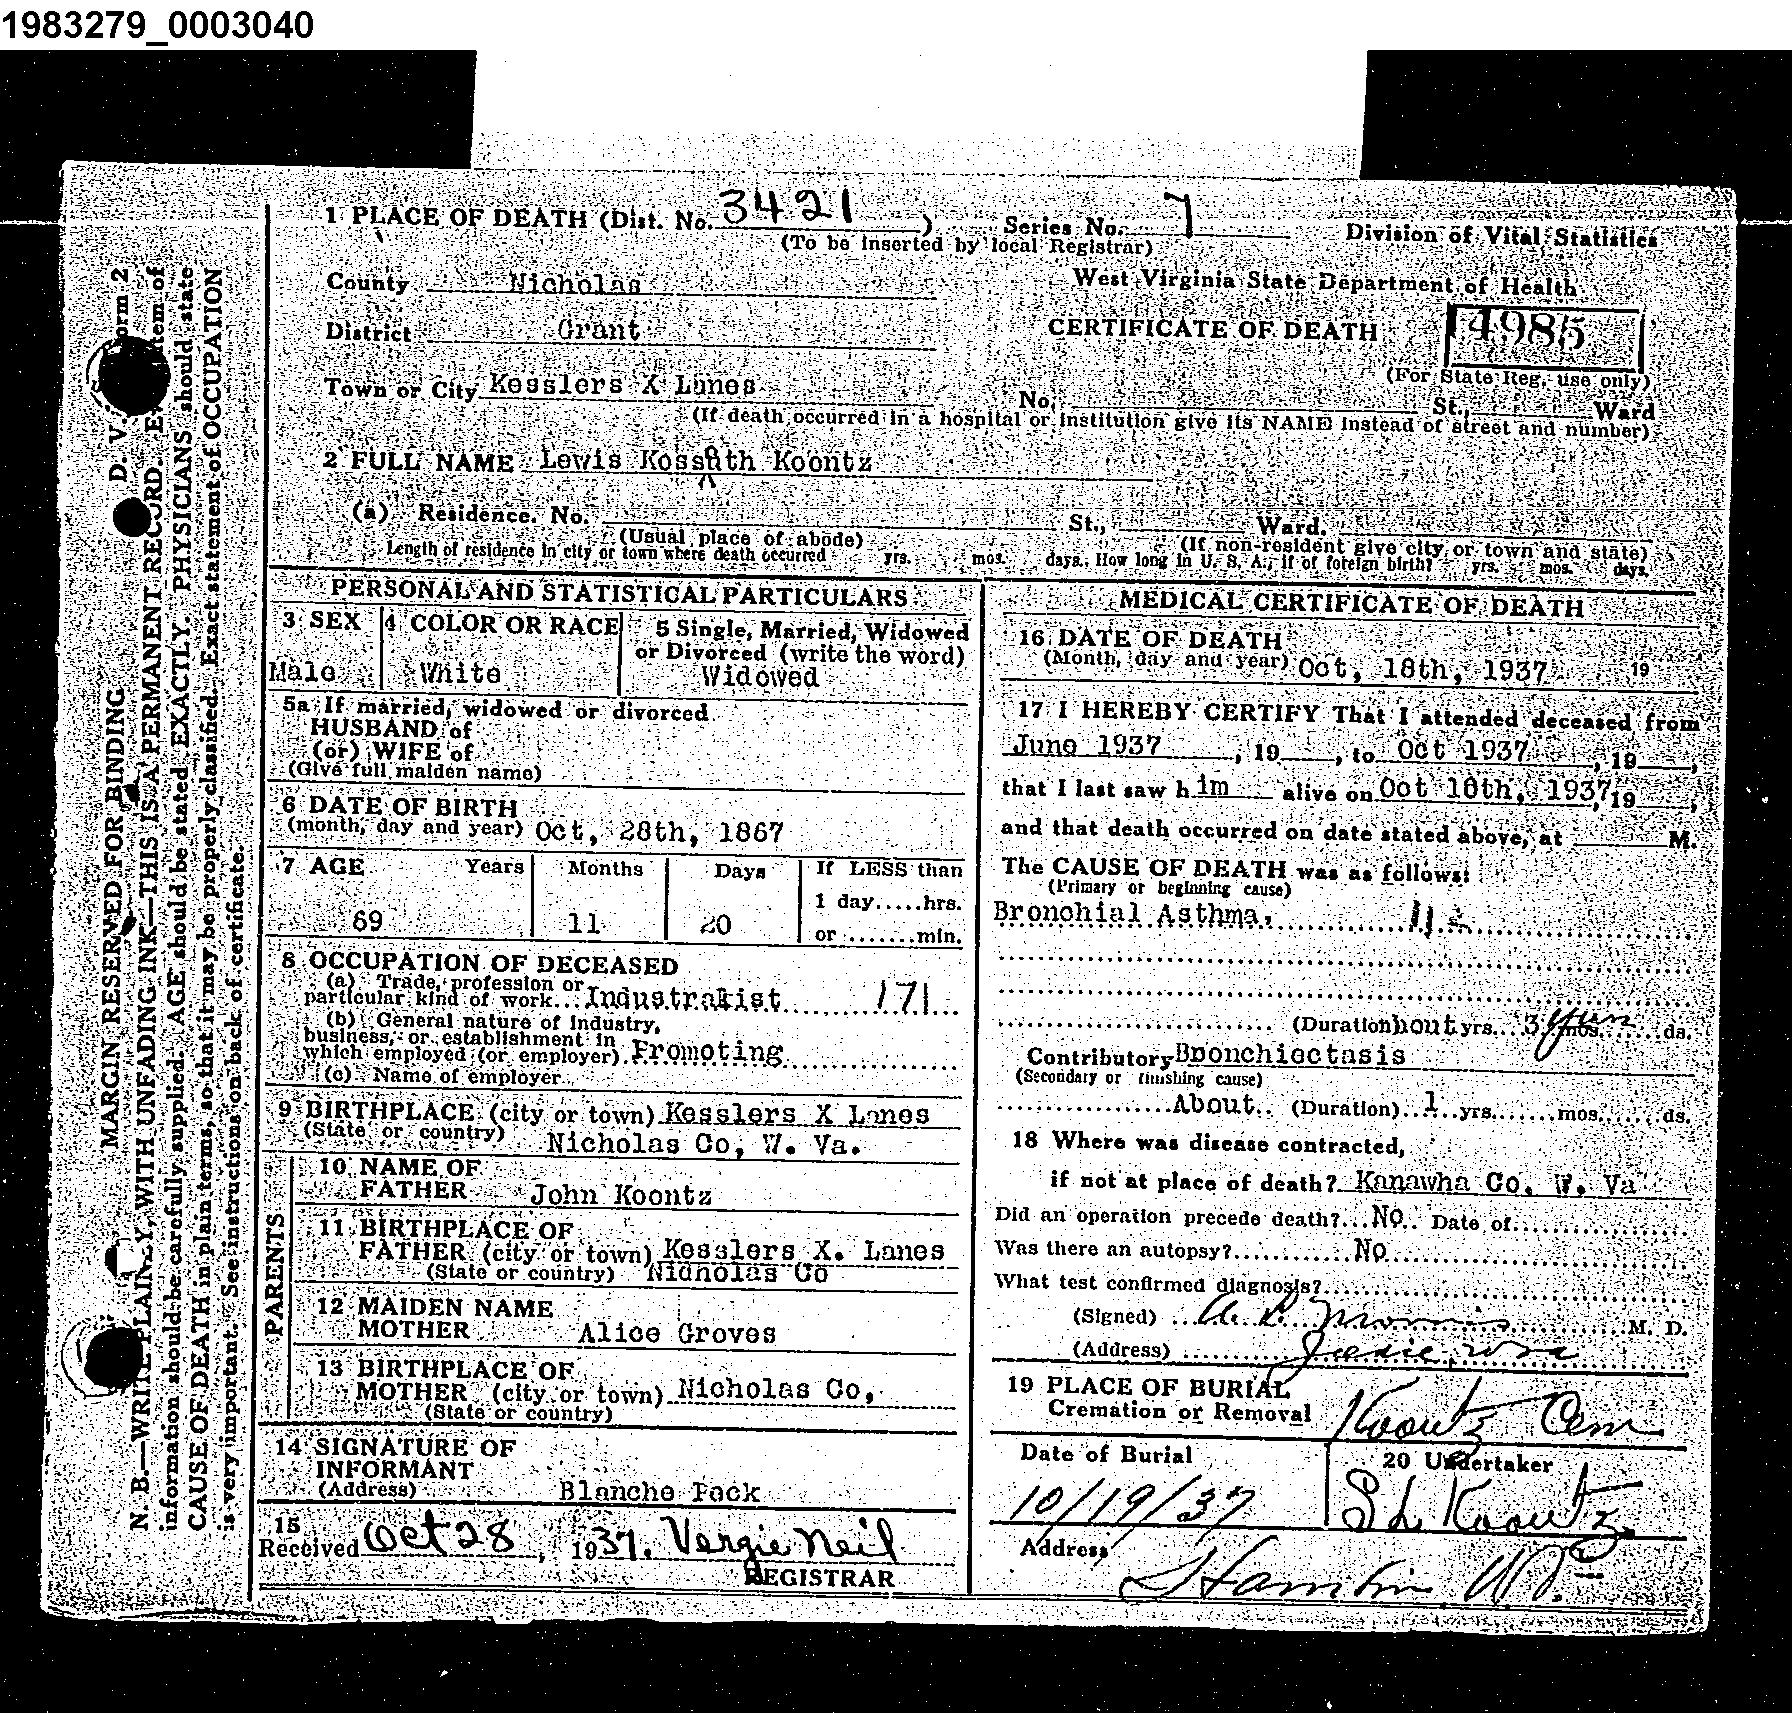 1983279_0003040
1 PLACE OF DEATH (Dist. No. 3421 ) Series No. 7 Division of Vital Statistics
(To be inserted by local Registrar)
County Nicholas West Virginia State Department of Health
District Grant CERTIFICATE OF DEATH 14985
Town or City Kesslers X Lanes (For State Reg. use only)
No. St., Ward
(If death occurred in a hospital or institution give its NAME instead of street and number)
2 FULL NAME Lewis Kossuth Koontz
(a) Residence. No. St., Ward.
(Usual place of abode) (If non-resident give city or town and state)
Length of residence in city or town where death occurred yrs. mos. days. How long in U. S. A., if of foreign birth? yrs. mos. days.
PERSONAL AND STATISTICAL PARTICULARS
3 SEX 4 COLOR OR RACE 5 Single, Married, Widowed
or Divorced (write the word)
Male White Widowed
5a If married, widowed or divorced
HUSBAND of
(or) WIFE of
(Give full maiden name)
6 DATE OF BIRTH
(month, day and year) Oct, 28th, 1867
7 AGE Years Months Days If LESS than
1 day.....hrs.
69 11 20 or .......min.
8 OCCUPATION OF DECEASED
(a) Trade, profession or
particular kind of work... Industrakist 171
(b) General nature of industry,
business, or establishment in
which employed (or employer). Promoting
(c) Name of employer
9 BIRTHPLACE (city or town) Kesslers X Lanes
(State or country) Nicholas Co, W. Va.
PARENTS
10 NAME OF
FATHER John Koontz
11 BIRTHPLACE OF
FATHER (city or town) Kesslers X. Lanes
(State or country) Nicholas Co
12 MAIDEN NAME
MOTHER Alice Groves
13 BIRTHPLACE OF
MOTHER (city or town) Nicholas Co,
(State or country)
14 SIGNATURE OF
INFORMANT
(Address) Blanche Peck
15
Received Oct 28, 1937. Vergie Neil
REGISTRAR
MEDICAL CERTIFICATE OF DEATH
16 DATE OF DEATH
(Month, day and year) Oct, 18th, 1937 19
17 I HEREBY CERTIFY That I attended deceased from
June 1937, 19, to Oct 1937, 19,
that I last saw h im alive on Oct 18th, 1937, 19,
and that death occurred on date stated above, at M.
The CAUSE OF DEATH was as follows:
(Primary or beginning cause)
Bronchial Asthma.
(Duration bout yrs. 3 mos. ds.
Contributory Bronchiectasis
(Secondary or finishing cause)
About (Duration) 1 yrs. mos. ds.
18 Where was disease contracted,
if not at place of death? Kanawha Co. W. Va
Did an operation precede death? No. Date of
Was there an autopsy? No
What test confirmed diagnosis?
(Signed) M. D.
(Address)
19 PLACE OF BURIAL
Cremation or Removal Koontz Cem
Date of Burial 20 Undertaker
10/19/37 S L Koontz
Address
MARGIN RESERVED FOR BINDING D. V. Form 2
N. B.—WRITE PLAINLY, WITH UNFADING INK—THIS IS A PERMANENT RECORD. Every item of
information should be carefully supplied. AGE should be stated EXACTLY. PHYSICIANS should state
CAUSE OF DEATH in plain terms, so that it may be properly classified. Exact statement of OCCUPATION
is very important. See instructions on back of certificate.